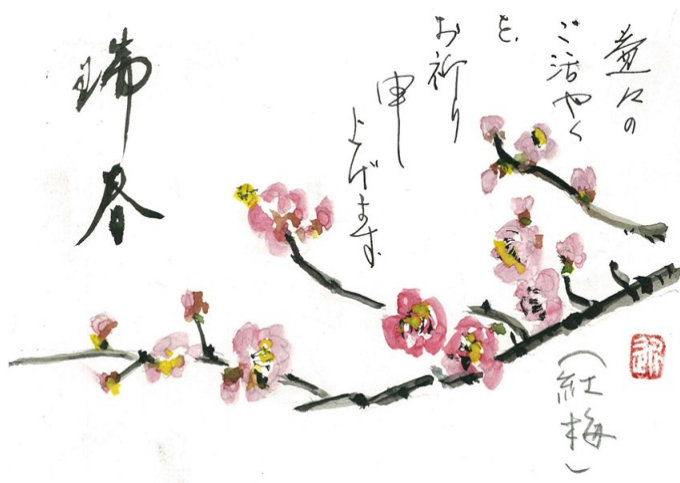 益々の
ご活やく
を
お祈り
申し
上げます。
瑞春
(紅梅)